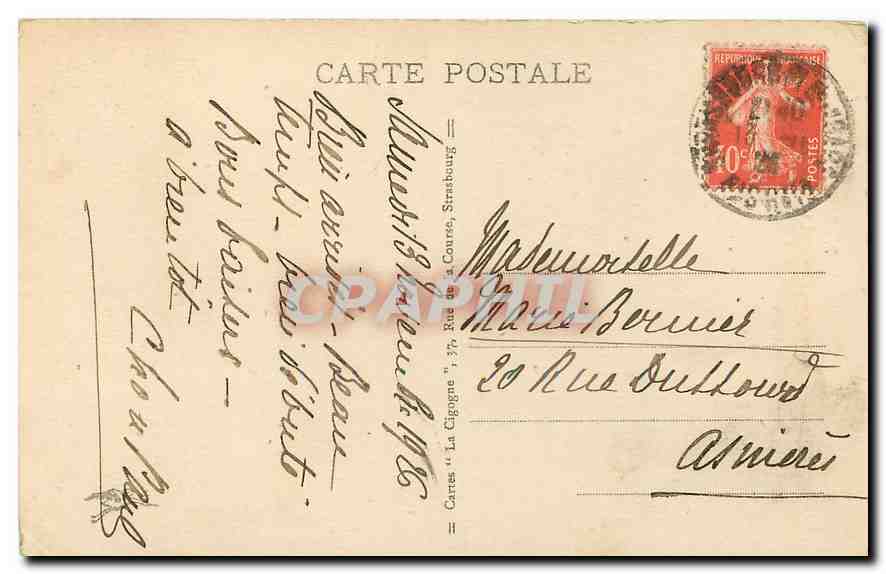 CARTE POSTALE
RÉPUBLIQUE FRANÇAISE
10c
POSTES
Samedi 13 Novembre 1926
Bien arrivés. Beau
temps -
Bons baisers -
à bientôt
= Cartes " La Cigogne ", 37, Rue de la Course, Strasbourg =
Mademoiselle
Marie Bornier
20 Rue
Asnières
CPAPHIL